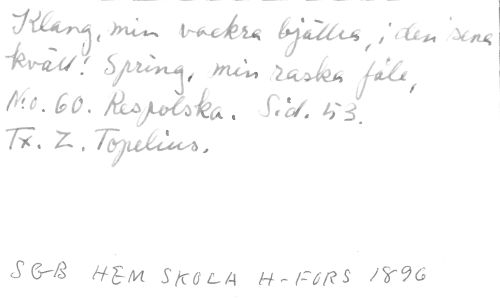 Klang, min vackra bjällra, i den sena
kväll! Spring, min raska fåle,
N:o. 60. Respolska. Sid. 53.
Tx. Z. Topelius.
SGB HEM SKOLA H-FORS 1896